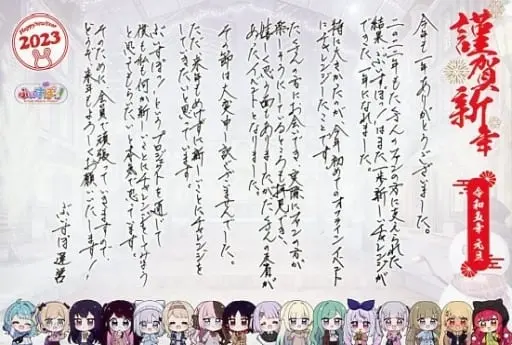 謹賀新年
令和五年 元旦
今年も一年ありがとうございました。
二〇二二年もたくさんのファンの方に支えられた
結果、ぶいすぽっ!はまた一歩新しいチャレンジが
できた一年になれました。
特に大きかったのが、今年初めてのオフラインイベント
にチャレンジしたことです。
たくさんの方にお会いでき、実際にファンの方が
楽しそうにしているところも拝見でき、
嬉しく思う面もありましたが、たくさんの
あったイベントともなりました。
その節は大変申し訳ございませんでした。
ただ、来年もめげずに新しいことにチャレンジを
していきたいと思っています。
ぶいすぽっ!というプロジェクトを通じて
僕も私も何か新しいことにチャレンジしてみよう
と思ってもらいたいと本気で思ってます。
そのために全員で頑張っていきますので、
どうぞ、来年もよろしくお願いいたします!!
ぶいすぽ運営
Happy New Year
2023
ぶいすぽっ!